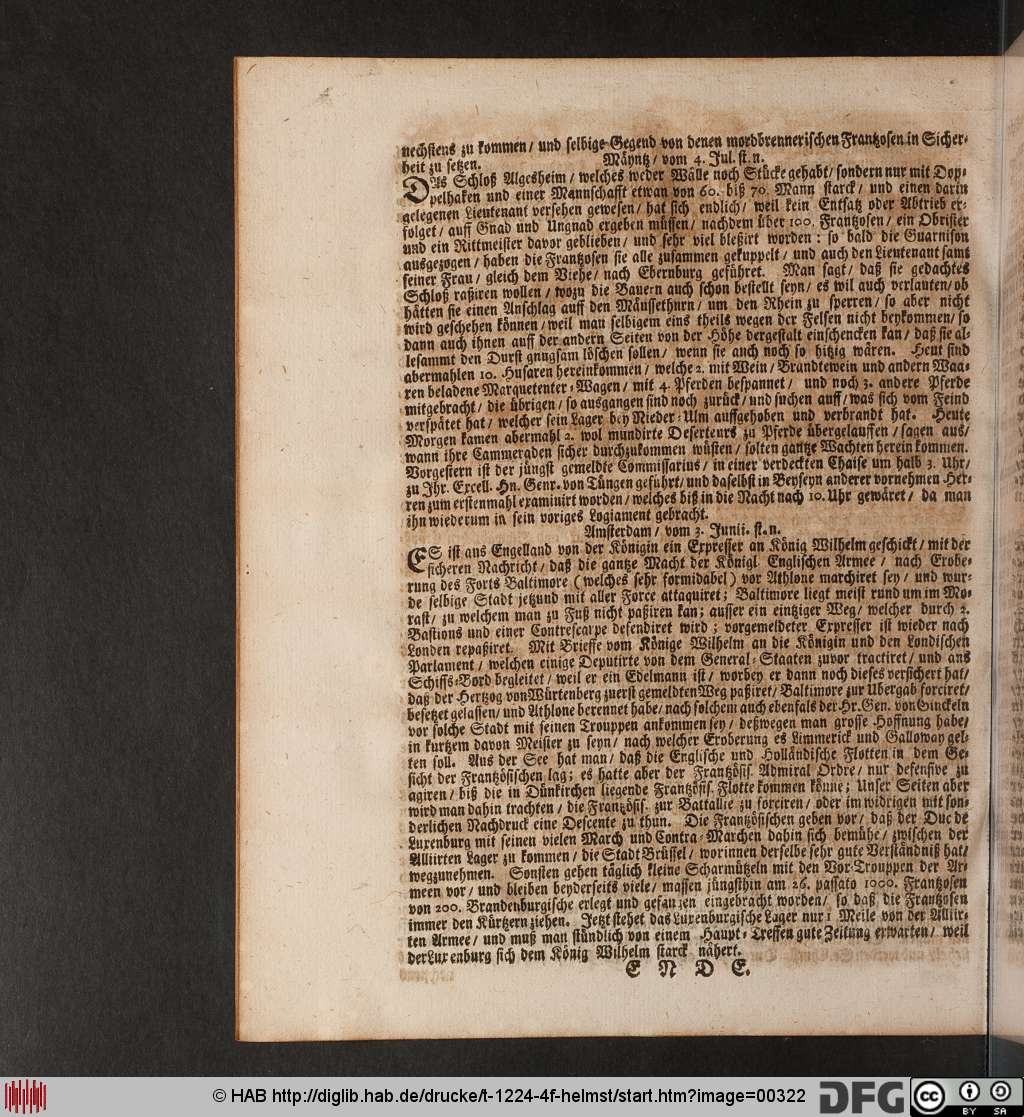 nechstens zu kommen / und selbige Gegend von denen mordbrennerischen Frantzosen in Sicher-
heit zu setzen.
Mäyntz / vom 4. Jul. st. n.
DAs Schloß Algesheim / welches weder Wälle noch Stücke gehabt / sondern nur mit Dop-
pelhaken und einer Mannschafft etwan von 60. biß 70. Mann starck / und einen darin
gelegenen Lieutenant versehen gewesen / hat sich endlich / weil kein Entsatz oder Abtrieb er-
folget / auff Gnad und Ungnad ergeben müssen / nachdem über 100. Frantzosen / ein Obrister
und ein Rittmeister davor geblieben / und sehr viel bleßirt worden : so bald die Guarnison
ausgezogen / haben die Frantzosen sie alle zusammen gekuppelt / und auch den Lieutenant samt
seiner Frau / gleich dem Viehe / nach Ebernburg geführet. Man sagt / daß sie gedachtes
Schloß raßiren wollen / wozu die Bauern auch schon bestellt seyn / es wil auch verlauten / ob
hätten sie einen Anschlag auff den Mäussethurn / um den Rhein zu sperren / so aber nicht
wird geschehen können / weil man selbigem eins theils wegen der Felsen nicht beykommen / so
dann auch ihnen auff der andern Seiten von der Höhe dergestalt einschencken kan / daß sie al-
lesammt den Durst gnugsam löschen sollen / wenn sie auch noch so hitzig wären. Heut sind
abermahlen 10. Husaren hereinkommen / welche 2. mit Wein / Brandtewein und andern Waa-
ren beladene Marquetenter-Wagen / mit 4. Pferden bespannet / und noch 3. andere Pferde
mitgebracht / die übrigen / so ausgangen sind noch zurück / und suchen auff / was sich vom Feind
verspätet hat / welcher sein Lager bey Nieder-Ulm auffgehoben und verbrandt hat. Heute
Morgen kamen abermahl 2. wol mundirte Deserteurs zu Pferde übergelauffen / sagen aus /
wann ihre Cammeraden sicher durchzukommen wüsten / solten gantze Wachten herein kommen.
Vorgestern ist der jüngst gemeldte Commissarius / in einer verdeckten Chaise um halb 3. Uhr /
zu Ihr. Excell. Hn. Genr. von Tüngen geführt / und daselbst in Beyseyn anderer vornehmen Her-
ren zum erstenmahl examinirt worden / welches biß in die Nacht nach 10. Uhr gewäret / da man
ihn wiederum in sein voriges Logiament gebracht.
Amsterdam / vom 3. Junii. st. n.
ES ist aus Engelland von der Königin ein Expresser an König Wilhelm geschickt / mit der
sicheren Nachricht / daß die gantze Macht der Königl. Englischen Armee / nach Erobe-
rung des Forts Baltimore ( welches sehr formidabel ) vor Athlone marchiret sey / und wur-
de selbige Stadt jetzund mit aller Force attaquiret ; Baltimore liegt meist rund um im Mo-
rast / zu welchem man zu Fuß nicht paßiren kan ; ausser ein eintziger Weg / welcher durch 2.
Bastions und einer Contrescarpe defendiret wird ; vorgemeldeter Expresser ist wieder nach
Londen repaßiret. Mit Brieffe vom Könige Wilhelm an die Königin und den Londischen
Parlament / welchen einige Deputirte von dem General-Staaten zuvor tractiret / und ans
Schiffs-Bord begleitet / weil er ein Edelmann ist / worbey er dann noch dieses versichert hat /
daß der Hertzog von Würtenberg zuerst gemeldten Weg paßiret / Baltimore zur Ubergab forciret /
besetzet gelassen / und Athlone berennet habe / nach solchem auch ebenfals der Hr. Gen. von Ginckeln
vor solche Stadt mit seinen Trouppen ankommen sey / deßwegen man grosse Hoffnung habe /
in kurtzem davon Meister zu seyn / nach welcher Eroberung es Limmerick und Galloway gel-
ten soll. Aus der See hat man / daß die Englische und Holländische Flotten in dem Ge-
sicht der Frantzösischen lag ; es hatte aber der Frantzösis. Admiral Ordre / nur defensive zu
agiren / biß die in Dünkirchen liegende Frantzösis. Flotte kommen könne ; Unser Seiten aber
wird man dahin trachten / die Frantzösis. zur Battallie zu forciren / oder im widrigen mit son-
derlichen Nachdruck eine Descente zu thun. Die Frantzösischen geben vor / daß der Duc de
Luxenburg mit seinen vielen March und Contra-Marchen dahin sich bemühe / zwischen der
Alliirten Lager zu kommen / die Stadt Brüssel / worinnen derselbe sehr gute Verständniß hat /
wegzunehmen. Sonsten gehen täglich kleine Scharmützeln mit den Vor-Trouppen der Ar-
meen vor / und bleiben beyderseits viele / massen jüngsthin am 26. passato 1000. Frantzosen
von 200. Brandenburgische erlegt und gefangen eingebracht worden / so daß die Frantzosen
immer den Kürtzern ziehen. Jetzt stehet das Luxenburgische Lager nur 1 Meile von der Alliir-
ten Armee / und muß man stündlich von einem Haupt-Treffen gute Zeitung erwarten / weil
der Luxenburg sich dem König Wilhelm starck nähert.
E N D E.
© HAB http://diglib.hab.de/drucke/t-1224-4f-helmst/start.htm?image=00322
DFG
cc
BY SA